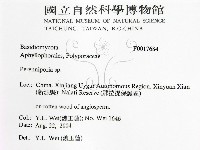 國立自然科學博物館
NATIONAL MUSEUM OF NATURAL SCIENCE
TAICHUNG, TAIWAN, R.O.CHINA
Basidiomycota F0017654
Aphyllophorales, Polyporaceae
Perenniporia sp.
Loc.: China, Xinjiang Uygur Autonomous Region, Xinyuan Xian
Nalati Reserve
on rotten wood of angiosperm.
Coll.: Y.L. Wei No. Wei 1646
Date: Aug. 22, 2004
Det.: Y.L. Wei